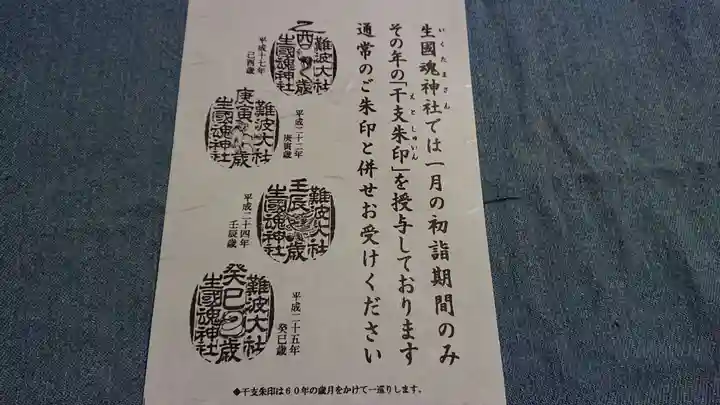 生國魂神社では一月の初詣期間のみ
いくたまさん
その年の「干支朱印」を授与しております
えとしゅいん
通常のご朱印と併せお受けください
難波大社
乙酉歳
生國魂神社
平成十七年
乙酉歳
難波大社
庚寅歳
生國魂神社
平成二十二年
庚寅歳
難波大社
壬辰歳
生國魂神社
平成二十四年
壬辰歳
難波大社
癸巳歳
生國魂神社
平成二十五年
癸巳歳
◆干支朱印は６０年の歳月をかけて一巡りします。